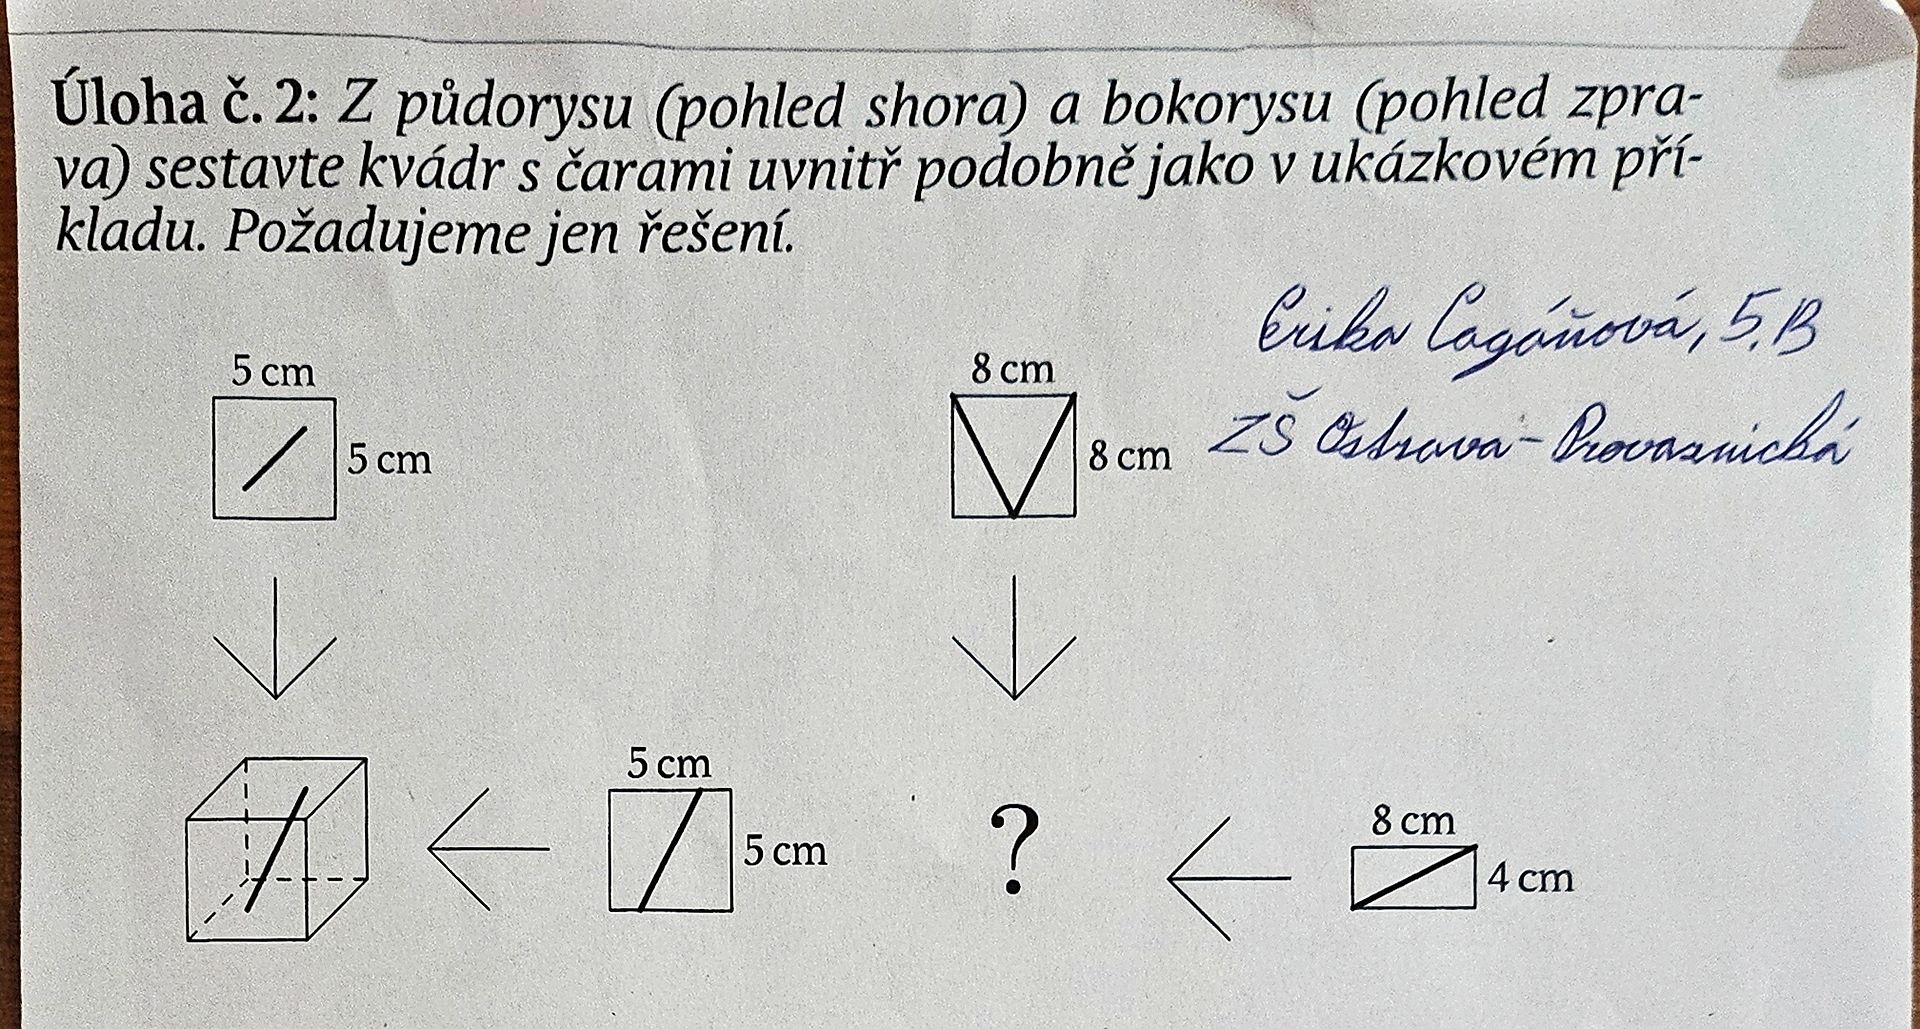 Úloha č. 2: Z půdorysu (pohled shora) a bokorysu (pohled zpra-
va) sestavte kvádr s čarami uvnitř podobně jako v ukázkovém pří-
kladu. Požadujeme jen řešení.
Erika Cagáňová, 5.B
ZŠ Ostrava - Provaznická
5 cm
5 cm
8 cm
8 cm
5 cm
5 cm
?
8 cm
4 cm